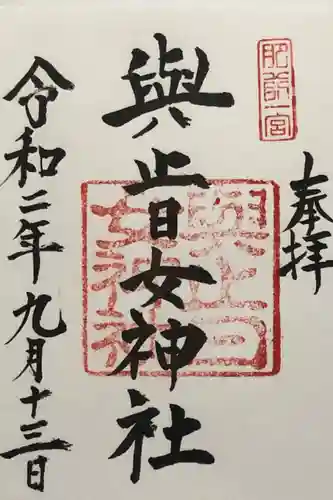 肥前一宮
奉拝
與止日女神社
與止日女神社
令和二年九月十三日